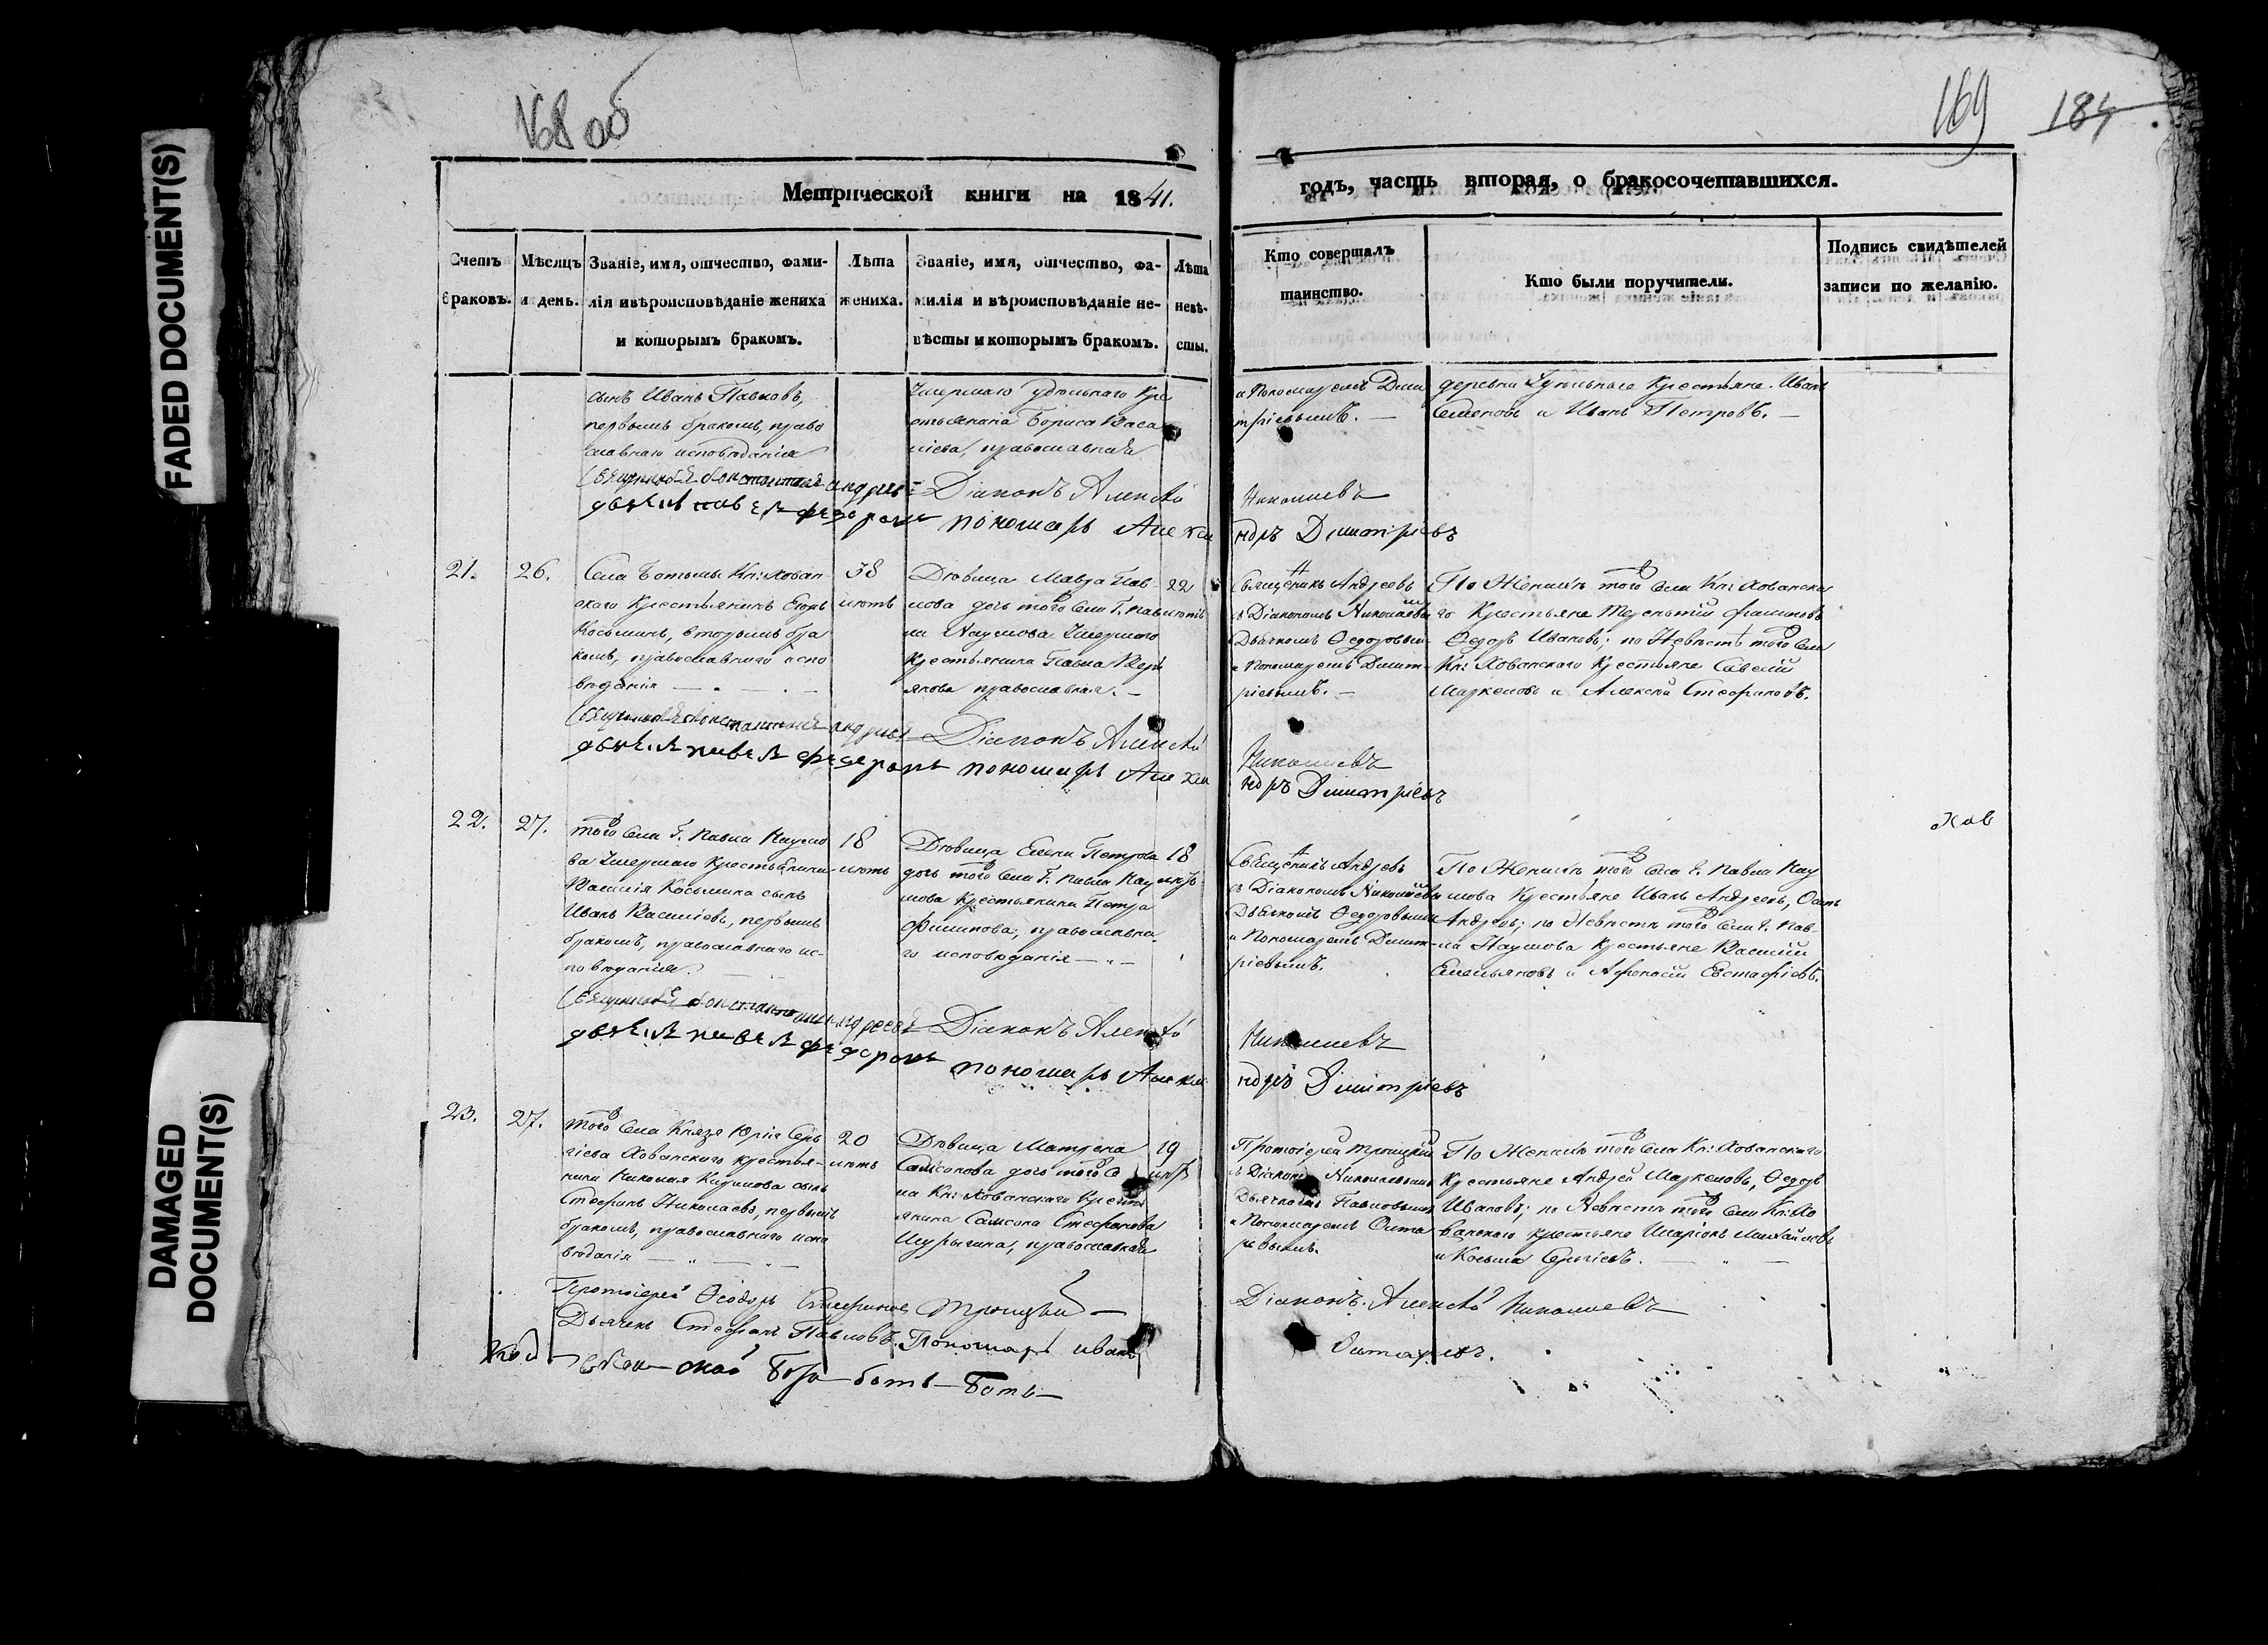 FADED DOCUMENT(S)
DAMAGED
DOCUMENT(S)
168 об
169 184
Метрической книги на 1841.
годъ, часть вторая, о бракосочетавшихся.
Счетъ браковъ.
Мѣсяцъ и день.
Званіе, имя, отчество, фами-
лія и вѣроисповѣданіе жениха
и которымъ бракомъ.
Лѣта
жениха.
Званіе, имя, отчество, фа-
милія и вѣроисповѣданіе не-
вѣсты и которымъ бракомъ.
Лѣта
невѣ-
сты.
Кто совершалъ
таинство.
Кто были поручители.
Подпись свидѣтелей
записи по желанію.
сынъ Иванъ Павловъ,
первымъ бракомъ, право
славнаго исповѣданія
Умершаго удѣльнаго Кре
стьянина Бориса Васи
ліева, православная
и Пономаремъ Дими
тріевымъ. —
деревни Удѣльные Крестьяне Иванъ
Семеновъ и Иванъ Петровъ. —
Священникъ Константинъ Андреевъ Діаконъ Алексѣй Николаевъ
дьячекъ Павелъ Федоровъ пономарь Александръ Димитріевъ
21.
26.
Села Ботьмы Кн: Хован-
скаго Крестьянинъ Егоръ
Косьминъ, вторымъ бра
комъ, православнаго испо
вѣданія
38
лѣтъ
Дѣвица Мавра Пав
лова дочь того Села Г. Пав
ла Наумова Умершаго
Крестьянина Павла
православная. —
22
лѣтъ
Священникъ Андреевъ
съ Діакономъ Николаевы
Дьячкомъ Ѳедоровым
и Пономаремъ Димит-
ріевымъ. —
По Женихѣ того Села Кн: Хованска
го Крестьяне Терентій Филиповъ
Ѳедоръ Ивановъ; по Невѣстѣ того Села
Кн: Хованскаго Крестьяне Савелій
Маркеловъ и Алексѣй Стефановъ.
Священникъ Константинъ Андреевъ Діаконъ Алексѣй Николаевъ
дьячекъ Павелъ Федоровъ пономарь Александръ Димитріевъ
22.
27.
того Села Г. Павла Наумо
ва Умершаго Крестьянина
Василія Косьмина сынъ
Иванъ Василіевъ, первымъ
бракомъ, православнаго ис-
повѣданія.
18
лѣтъ
Дѣвица Елена Петрова
дочь того Села Г. Павла Нау
мова Крестьянина Петра
Филипова, православна
го исповѣданія
18
лѣтъ
Священникъ Андреевъ
съ Діакономъ Николаевы
Дьячкомъ Ѳедоровым
и Пономаремъ Димит-
ріевымъ.
По Женихѣ того Села Г. Павла Нау
мова Крестьяне Иванъ Андреевъ, Осипъ
Андреевъ; по Невѣстѣ того Села Г. Пав-
ла Наумова Крестьяне Василій
Емельяновъ и Афонасій Евстафіевъ.
Священникъ Константинъ Андреевъ Діаконъ Алексѣй Николаевъ
дьячекъ Павелъ Федоровъ пономарь Александръ Димитріевъ
23.
27.
того Села Князя Юрія Сер
гіева Хованскаго крестья-
нина Николая Кирилова сынъ
Стефанъ Николаевъ, первымъ
бракомъ, православнаго испо
вѣданія
20
лѣтъ
Дѣвица Матрена
Самсонова дочь того Се
ла Кн: Хованскаго Крестьянина Самсона Стефанова
Шурыгина, православная
19
лѣтъ
Протоіерей Троицкій
съ Діакономъ Николаевымъ
Дьячкомъ Павловымъ
и Пономаремъ
По Женихѣ того Села Кн: Хованскаго
Крестьяне Андрей Маркеловъ, Ѳедоръ
Ивановъ; по Невѣстѣ того Села Кн: Хо
ванскаго крестьяне Иларіонъ Михайловъ
и Косьма Сергіевъ.
Протоіерей Ѳеодоръ Стефановъ Троицкій — Діаконъ Алексѣй Николаевъ
Дьячекъ Стефанъ Павловъ. Пономарь Иванъ